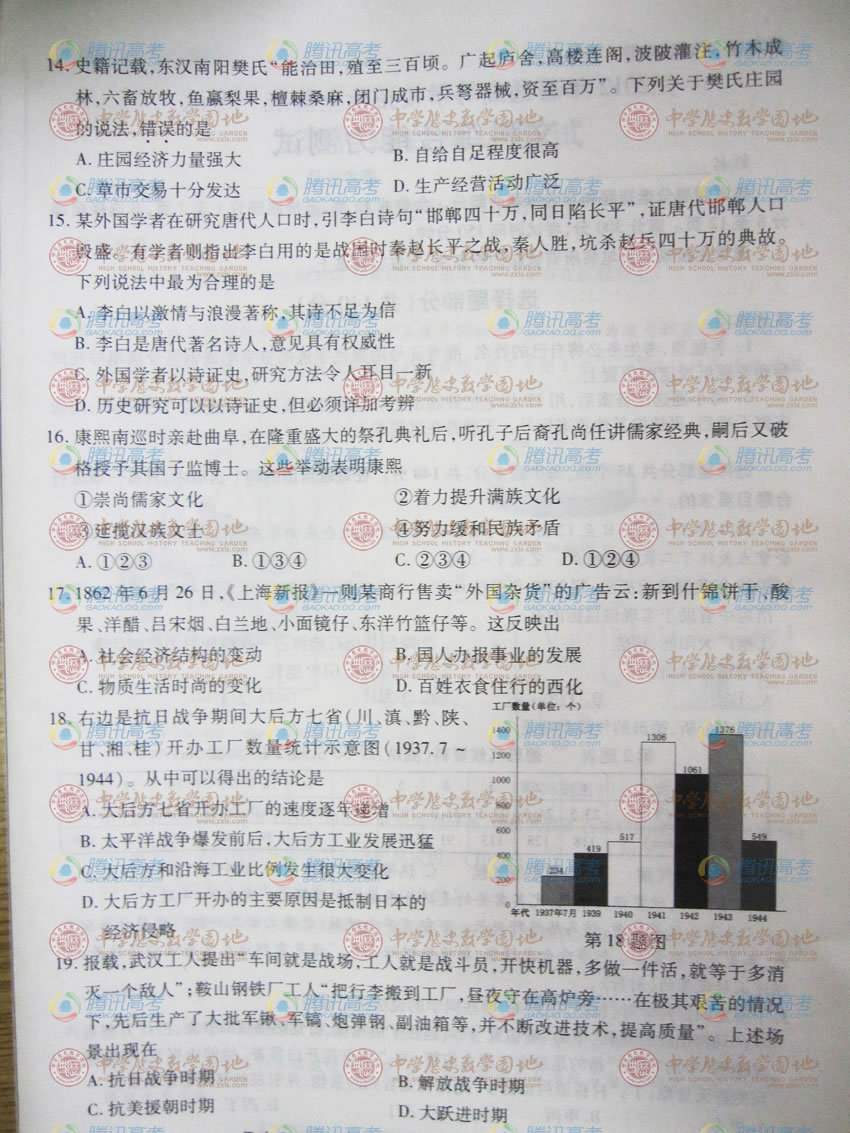 14. 史籍记载,东汉南阳樊氏“能治田,殖至三百顷。广起庐舍,高楼连阁,波陂灌注,竹木成
林,六畜放牧,鱼蠃梨果,檀棘桑麻,闭门成市,兵弩器械,资至百万”。下列关于樊氏庄园
的说法,错误的是
A. 庄园经济力量强大 B. 自给自足程度很高
C. 草市交易十分发达 D. 生产经营活动广泛
15. 某外国学者在研究唐代人口时,引李白诗句“邯郸四十万,同日陷长平”,证唐代邯郸人口
殷盛。有学者则指出李白用的是战国时秦赵长平之战,秦人胜,坑杀赵兵四十万的典故。
下列说法中最为合理的是
A. 李白以激情与浪漫著称,其诗不足为信
B. 李白是唐代著名诗人,意见具有权威性
C. 外国学者以诗证史,研究方法令人耳目一新
D. 历史研究可以以诗证史,但必须详加考辨
16. 康熙南巡时亲赴曲阜,在隆重盛大的祭孔典礼后,听孔子后裔孔尚任讲儒家经典,嗣后又破
格授予其国子监博士。这些举动表明康熙
①崇尚儒家文化 ②着力提升满族文化
③延揽汉族文士 ④努力缓和民族矛盾
A. ①②③ B. ①③④ C. ②③④ D. ①②④
17. 1862 年 6 月 26 日,《上海新报》一则某商行售卖“外国杂货”的广告云:新到什锦饼干、酸
果、洋醋、吕宋烟、白兰地、小面镜仔、东洋竹篮仔等。这反映出
A. 社会经济结构的变动 B. 国人办报事业的发展
C. 物质生活时尚的变化 D. 百姓衣食住行的西化
18. 右边是抗日战争期间大后方七省(川、滇、黔、陕、
甘、湘、桂)开办工厂数量统计示意图(1937.7~
1944)。从中可以得出的结论是
A. 大后方七省开办工厂的速度逐年递增
B. 太平洋战争爆发前后,大后方工业发展迅猛
C. 大后方和沿海工业比例发生很大变化
D. 大后方工厂开办的主要原因是抵制日本的
经济侵略
工厂数量(单位:个)
1400
1200
1000
800
600
400
200
0
234 419 517 1306 1061 1376 549
年代 1937年7月 1939 1940 1941 1942 1943 1944
第 18 题图
19. 报载,武汉工人提出“车间就是战场,工人就是战斗员,开快机器,多做一件活,就等于多消
灭一个敌人”;鞍山钢铁厂工人“把行李搬到工厂,昼夜守在高炉旁……在极其艰苦的情况
下,先后生产了大批军锹、军镐、炮弹钢、副油箱等,并不断改进技术,提高质量”。上述场
景出现在
A. 抗日战争时期 B. 解放战争时期
C. 抗美援朝时期 D. 大跃进时期
腾讯高考
GAOKAO.QQ.COM
中学历史教学园地
HIGH SCHOOL HISTORY TEACHING GARDEN
www.zxls.com